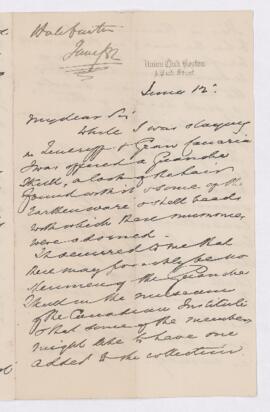 June/82
Union Club Boston
8 Park Street
June 12.
My dear Sir
While I was staying
in Teneriff & Gran Canaria
I was offered a Guanche
Skull, a lock of the hair
found with it & some of the
earthenware & shell beads
with which these mummies
were adorned.
It occurred to me that
there may possibly be no
specimen of the Guanche
Skull in the museum
of the Canadian Institute
& that some of the members
might like to have one
added to the collection